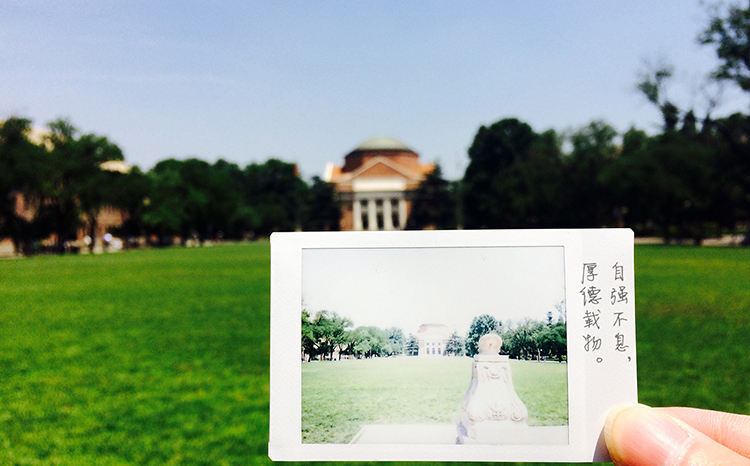 自强不息,
厚德载物。